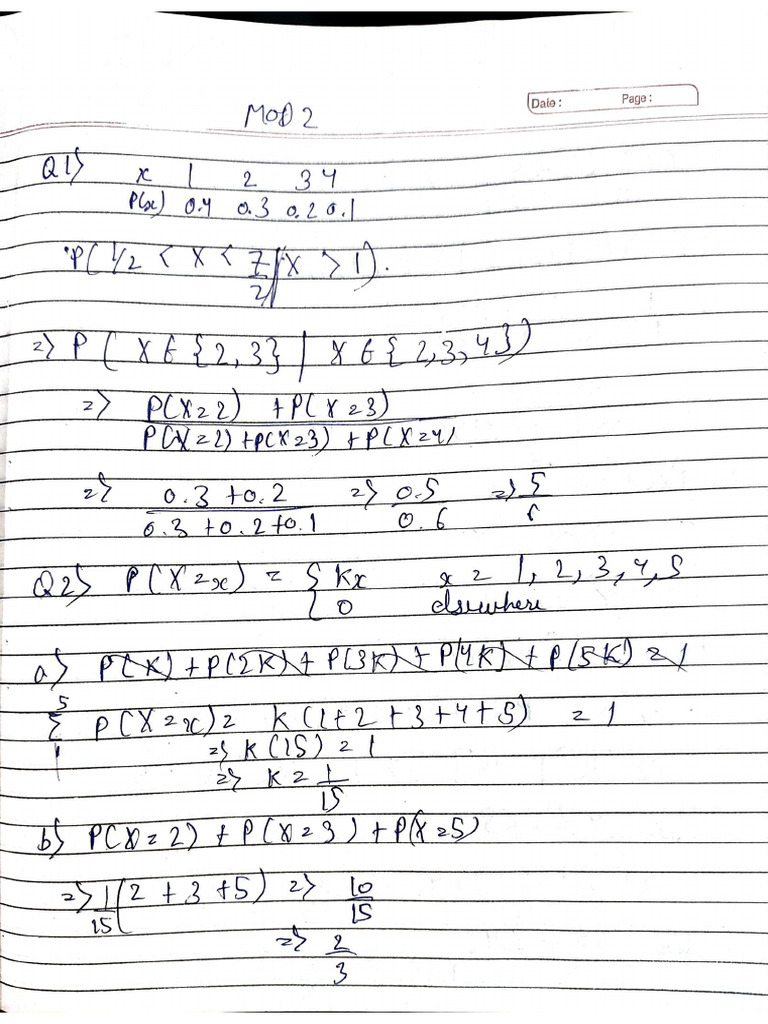 Date :
Page :
MOD 2
Q1> x 1 2 3 4
P(x) 0.4 0.3 0.2 0.1
P( 1/2 < X < 7/2 | X > 1).
=> P ( X ∈ {2,3} | X ∈ {2,3,4})
=> P(X=2) + P(X=3) / P(X=2) + P(X=3) + P(X=4)
=> 0.3 + 0.2 / 0.3 + 0.2 + 0.1 => 0.5 / 0.6 => 5/6
Q2> P(X=x) = { kx x = 1, 2, 3, 4, 5
{ 0 elsewhere
a> P(K) + P(2K) + P(3K) + P(4K) + P(5K) = 1
5 Σ 1 P(X=x) = k(1+2+3+4+5) = 1
=> K(15) = 1
=> K = 1/15
b> P(X=2) + P(X=3) + P(X=5)
=> 1/15 (2 + 3 + 5) => 10/15
=> 2/3